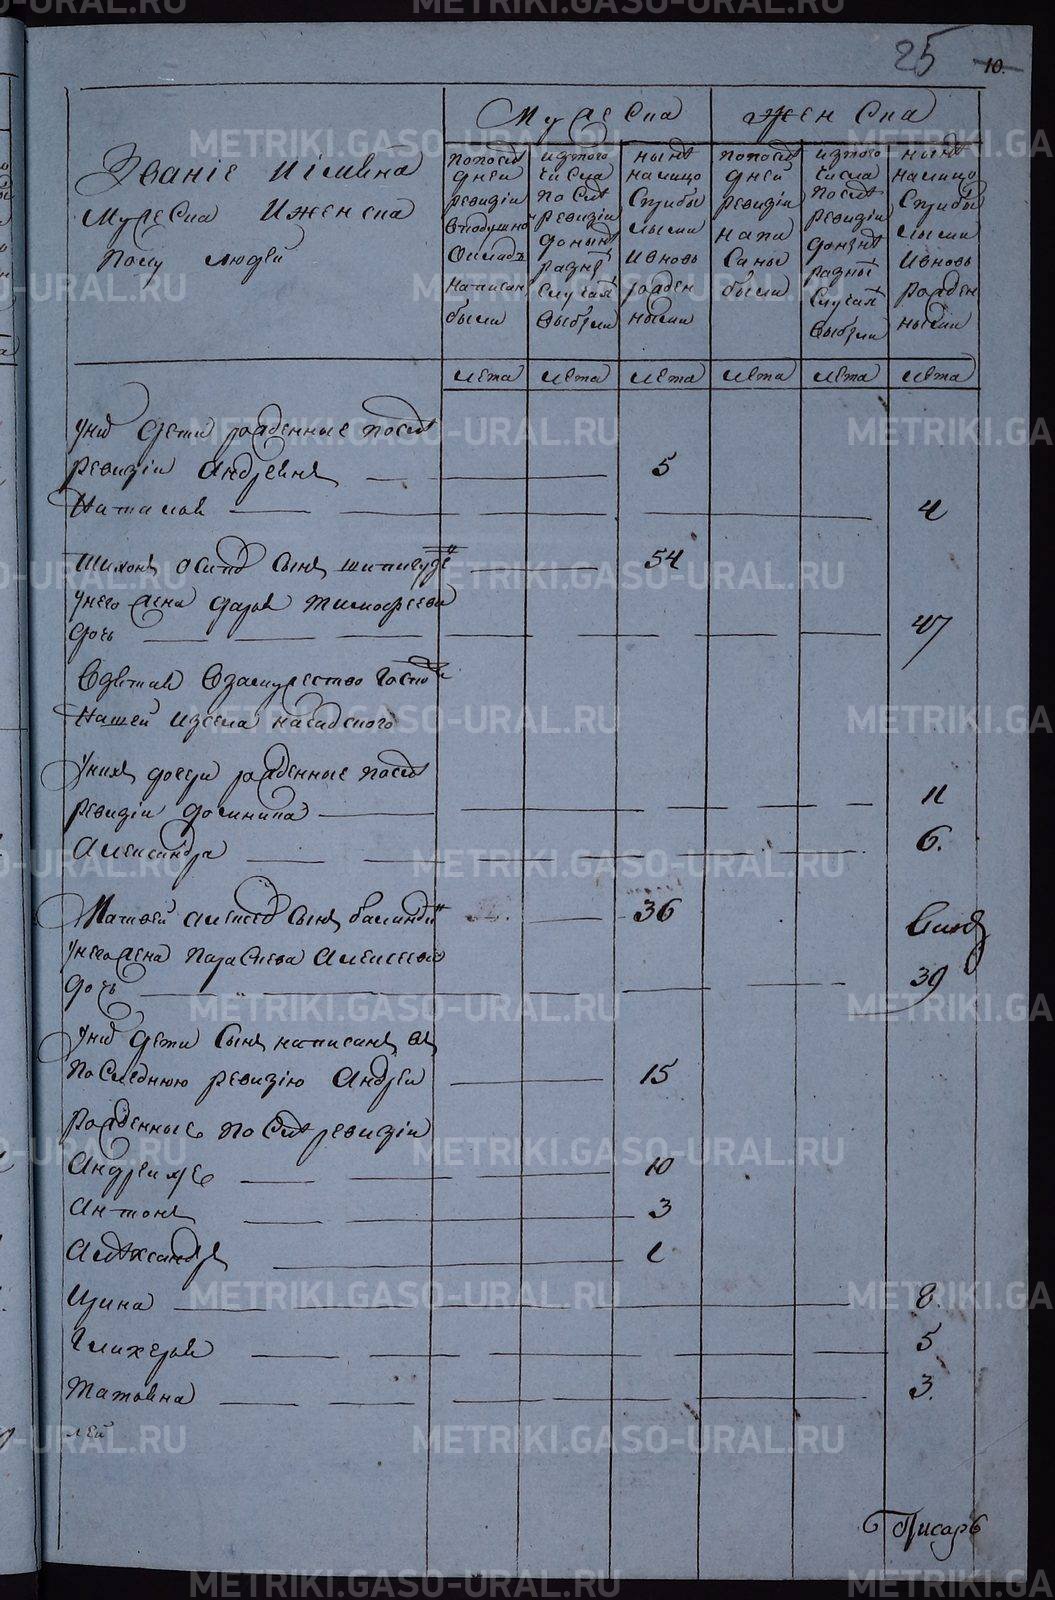 25
10.
Мужеска
женска
Званіе иімяна
мужеска иженска
полу людей
попослѣ
дней
ревизіи
вподушно
окладѣ
написан
были
изтого
числа
послѣ
ревизіи
донынѣ
разнѣ
случаѣ
выбыли
нынѣ
налицо
Сприбы
лыми
ивновь
рожден
ными
попослѣ
дней
ревизіи
напи
саны
были
изтого
числа
послѣ
ревизіи
донынѣ
разны
случаѣ
выбыли
нынѣ
налицо
Сприбы
лыми
ивновь
рожден
ными
лета лета лета лета лета лета
унихъ дети рожденные послѣ
ревизіи Андреянъ 5
Наталья 4
Тихонъ осиповъ сынъ 54
унего жена дарья тимофѣева
дочь 47
взятая взамужество
нашей изсела
унихъ дочери рожденные послѣ
ревизіи домнина 11
Александра 6.
Матвей алексеевъ сынъ 36
унего жена параскева Алексеева
дочь 39
унихъ дети сынъ написанъ въ
последнюю ревизію Андрей 15
рожденные послѣ ревизіи
Андрей же 10
антонъ 3
Алѣксандръ 1
Ирина 8.
Гликерья 5
Татьяна 3.
лей
Писарь
METRIKI.GASO-URAL.RU